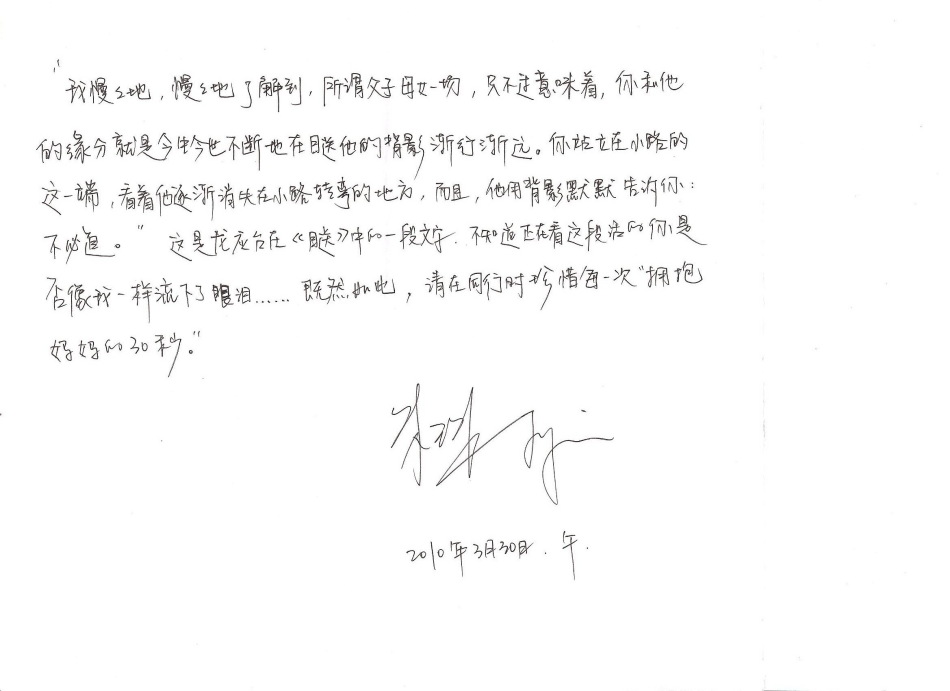 "我慢慢地，慢慢地了解到，所谓父子母女一场，只不过意味着，你和他
的缘分就是今生今世不断地在目送他的背影渐行渐远。你站立在小路的
这一端，看着他逐渐消失在小路转弯的地方，而且，他用背影默默告诉你：
不必追。" 这是龙应台在《目送》中的一段文字．不知道正在看这段话的你是
否像我一样流下了眼泪……既然如此，请在同行时珍惜每一次"拥抱
妈妈的30秒。"
2010年3月30日．午．